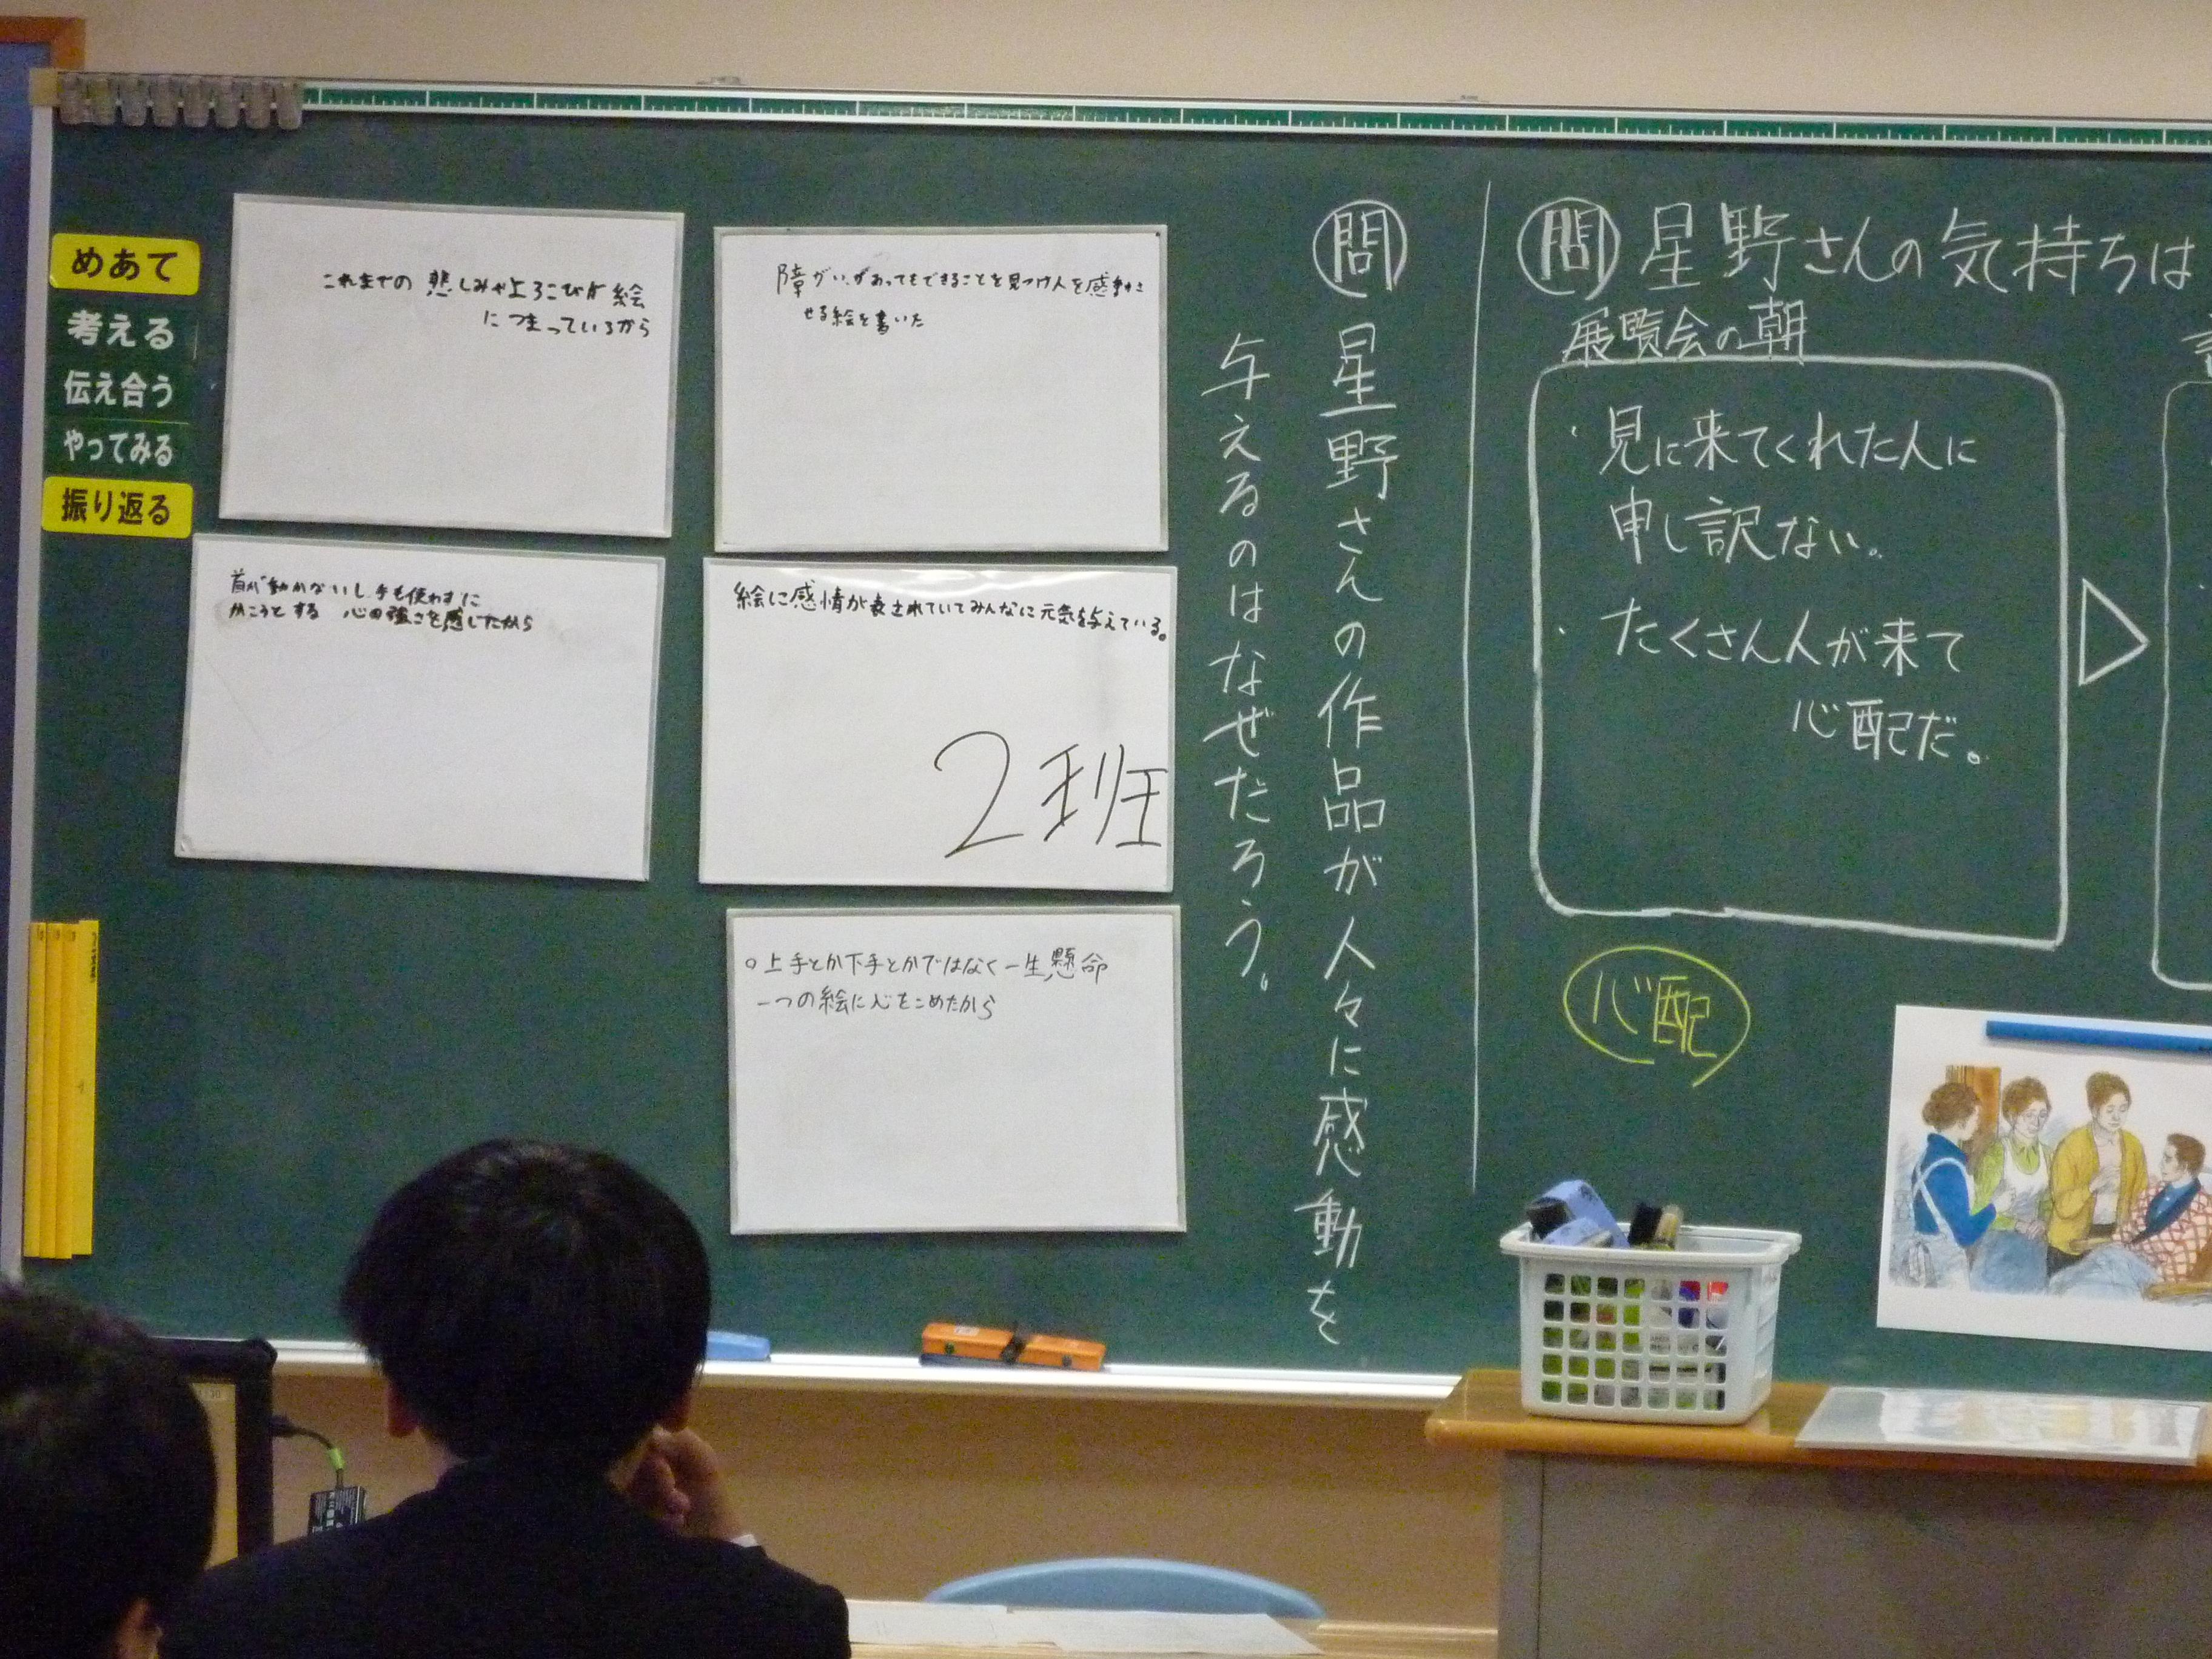 めあて
考える
伝え合う
やってみる
振り返る
これまでの 悲しみや上ろこびが絵
につまっているから
障がいがあってもできることを見つけ人を感動さ
せる絵を書いた
首が動かないし手も使わずに
かこうとする 心の強さを感じたから
絵に感情が表されていてみんなに元気を与えている。
2班
○上手とか下手とかではなく一生懸命
一つの絵に心をこめたから
問 星野さんの作品が人々に感動を
与えるのはなぜだろう。
問 星野さんの気持ちは
展覧会の朝
・見に来てくれた人に
申し訳ない。
・たくさん人が来て
心配だ。
心配